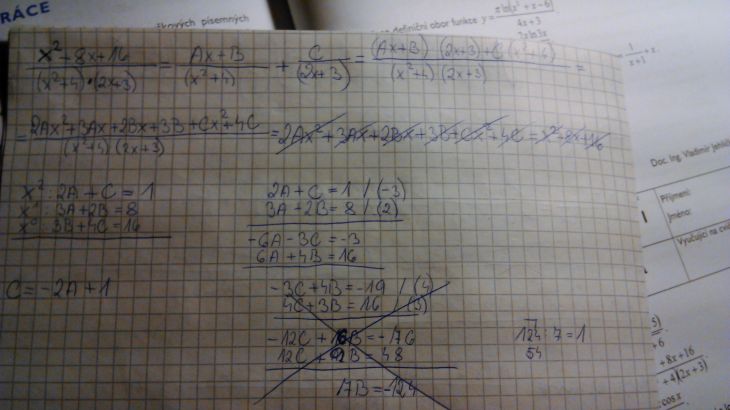 RÁCE
písemných
definiční obor funkce y =
4x+3
(x²+8x+16)/((x²+4)·(2x+3)) = (Ax+B)/(x²+4) + C/(2x+3) = ((Ax+B)(2x+3)+C(x²+4))/((x²+4)(2x+3)) =
= (2Ax²+3Ax+2Bx+3B+Cx²+4C)/((x²+4)(2x+3)) = 2Ax²+3Ax+2Bx+3B+Cx²+4C = x²+8x+16
x²: 2A + C = 1
x¹: 3A+2B = 8
x⁰: 3B+4C = 16
C = -2A+1
2A + C = 1 / (-3)
3A + 2B = 8 / (2)
-6A - 3C = -3
6A + 4B = 16
-3C + 4B = -19 / (4)
4C + 3B = 16 / (3)
-12C + 16B = -76
12C + 9B = 48
17B = -124
124 : 7 = 1
54
Doc. Ing. Vladimír
Příjmení:
Jméno:
Vyučující na
+8x+16
+4)(2x+3)
cos x